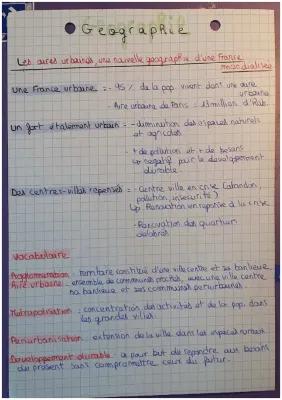 Géographie
Les aires urbaines, une nouvelle géographie d'une France
mondialisée
Une France urbaine = - 95 % de la pop. vivent dans une aire
urbaine
- Aire urbaine de Paris :
Un fort étalement urbain = - diminution des espaces naturels
et agricoles
- + de pollution et + de besoins
négatif pour le développement
durable
Des centres-villes repensés = - Centre ville en crise (abandon,
pollution, insécurité)
Rénovation en réponse à la crise
- Rénovation des quartiers
délabrés
Vocabulaire
Agglomération : territoire constitué d'une ville centre et sa banlieue
Aire urbaine : ensemble de communes proches, avec une ville centre
sa banlieue et ses communes périurbaines
Métropolisation : concentration des activités et de la pop. dans
les grandes villes
Périurbanisation : extension de la ville dans les espaces ruraux
Développement durable : a pour but de répondre aux besoins
du présent sans compromettre ceux du futur.